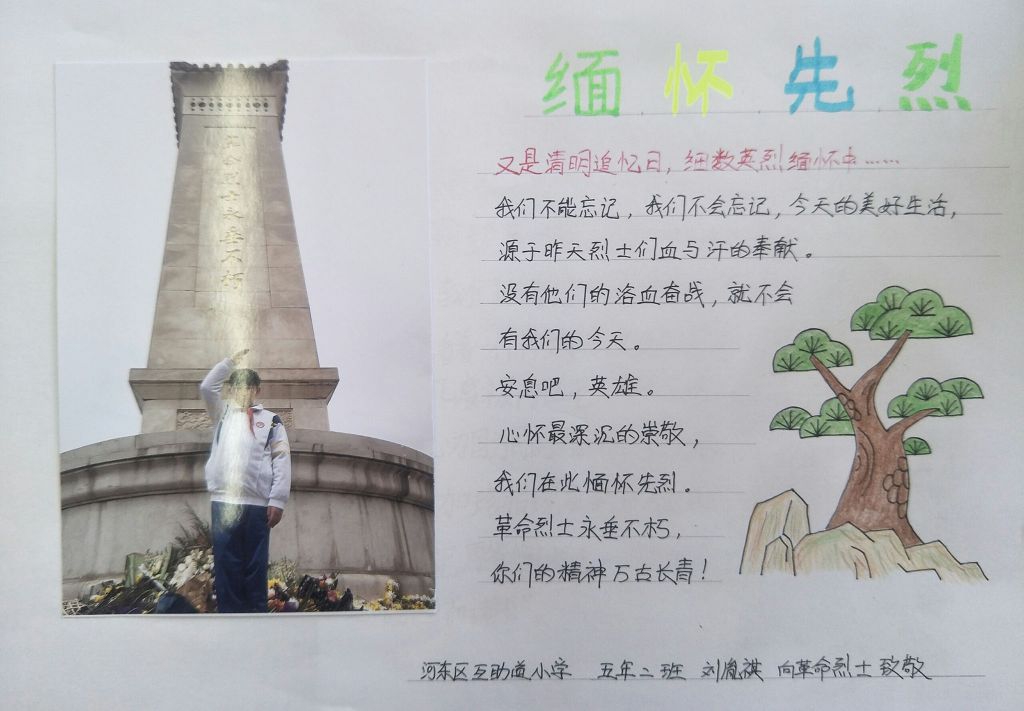 缅怀先烈
又是清明追忆日，细数英烈缅怀中……
我们不能忘记，我们不会忘记，今天的美好生活，
源于昨天烈士们血与汗的奉献。
没有他们的浴血奋战，就不会
有我们的今天。
安息吧，英雄。
心怀最深沉的崇敬，
我们在此缅怀先烈。
革命烈士永垂不朽，
你们的精神万古长青！
河东区互助道小学 五年二班 刘胤祺 向革命烈士致敬
革命烈士永垂不朽